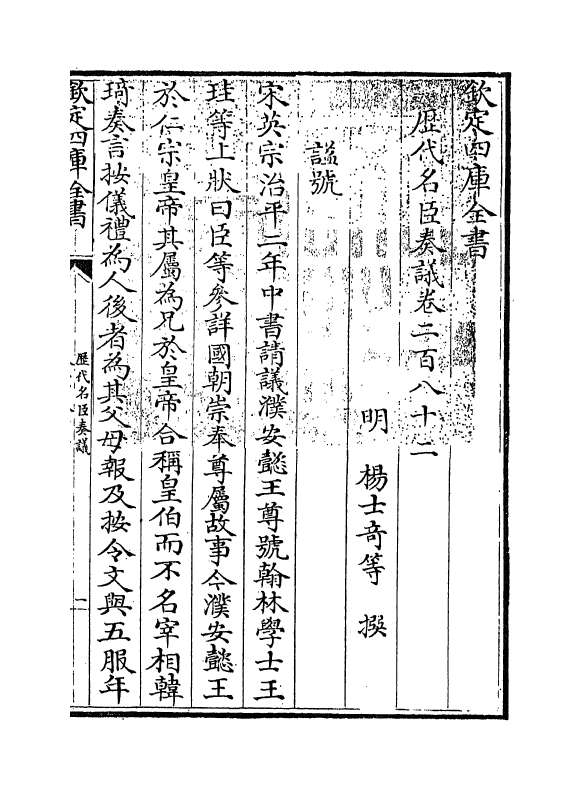 欽定四庫全書
歷代名臣奏議卷二百八十二
明　楊士奇等　撰
諡號
宋英宗治平二年中書請議濮安懿王尊號翰林學士王
珪等上狀曰臣等參詳國朝崇奉尊屬故事今濮安懿王
於仁宗皇帝其屬為兄於皇帝合稱皇伯而不名宰相韓
琦奏言按儀禮為人後者為其父母報及按令文與五服年
欽定四庫全書
歷代名臣奏議